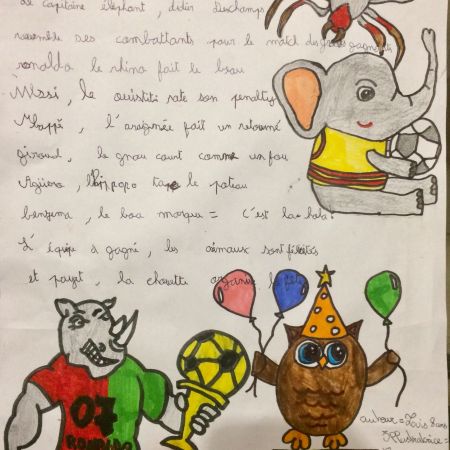 de capitaine éléphant, didier Deschamps
rassemble ses combattants pour le match des grands gagnants
ronaldo le rhino fait le beau
Messi, le ouistiti rate son penalty
Mbappé, l'araignée fait un retourné
giroud, le gnou court comme un fou
Agüero, l'hippopo tape le poteau
benzema, le boa marque = c'est la hola!
L'équipe a gagné, les animaux sont félicités
et payet, la chouette organise la fête
07
RONALDO
auteur = Laïs 8 ans
Illustratrice =